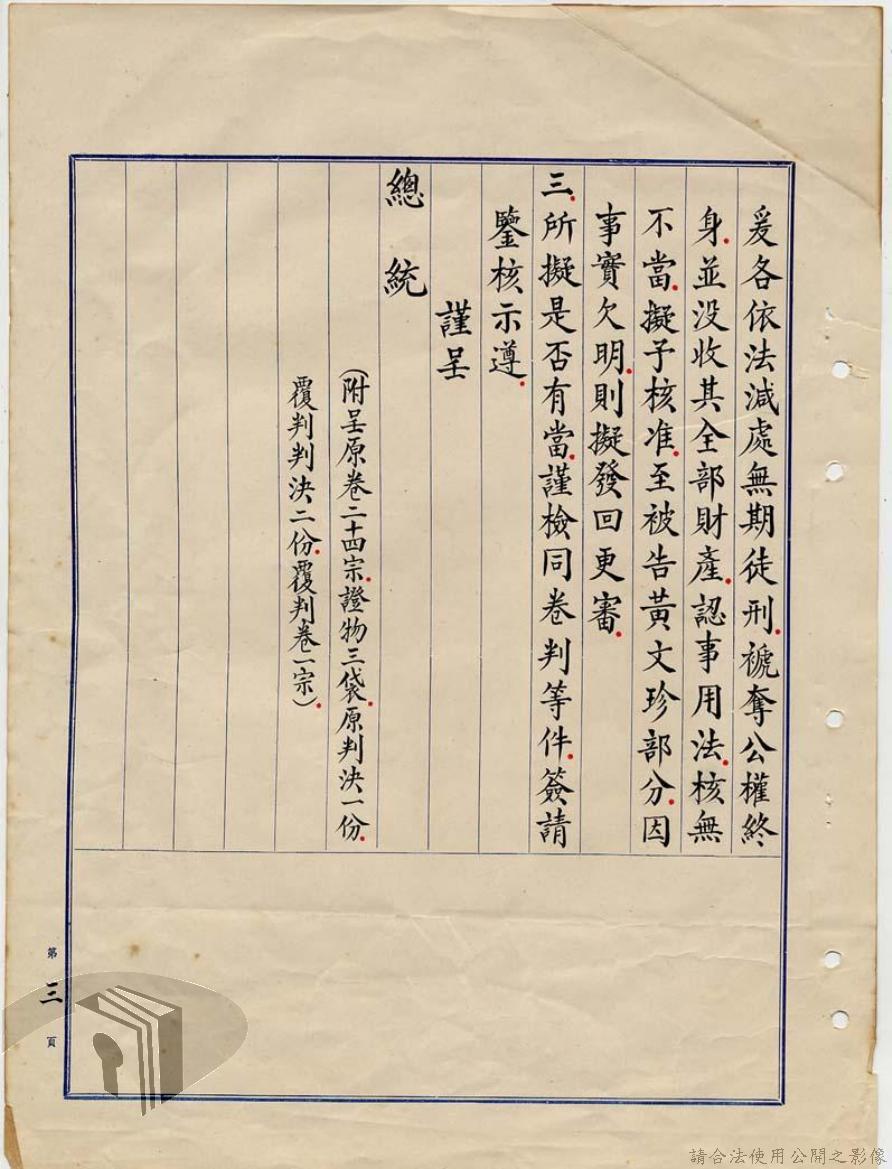 爰各依法減處無期徒刑.褫奪公權終
身.並没收其全部財產.認事用法.核無
不當.擬予核准.至被告黃文珍部分.因
事實欠明.則擬發回更審.
三.所擬是否有當.謹檢同卷判等件.簽請
鑒核示遵.
謹呈
總統
(附呈原卷二十四宗.證物三袋.原判決一份.
覆判判決二份.覆判卷一宗).
第三頁
請合法使用公開之影像